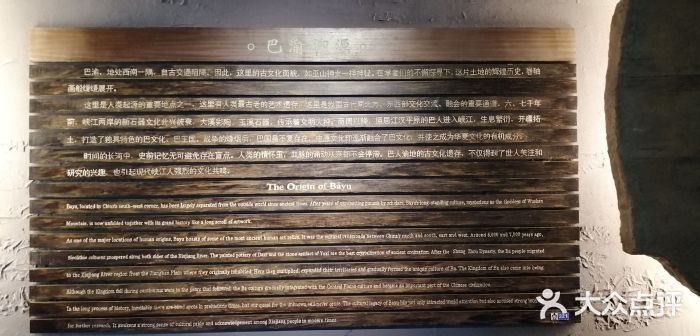 巴渝
巴渝，地处西南一隅，自古交通阻隔，因此，这里的古文化面貌，如巫山神女一样神秘。在学者们的不懈探寻下，这片土地的辉煌历史，卷轴
画般缓缓展开。
这里是人类起源的重要地点之一，这里有人类最古老的艺术遗存，这里是
六、七千年
前，峡江两岸的新石器文化此兴彼衰，大溪彩陶，玉溪石器，
进入峡江，生息繁衍，开疆拓
土，打造了独具特色的巴文化。巴王国，战争的烽烟后，巴国虽不复存在，
巴文化，并使之成为华夏文化的有机成分。
时间的长河中，史前记忆无可避免存在盲点。人类的情怀里，
的涌动从来都不会停滞。巴人渝地的古文化遗存，不仅得到了世人关注和
研究的兴趣，也引起现代峡江人强烈的文化共鸣。
The Origin of Bayu
Bayu, located in China's south-west corner, has been largely separated from the outside world since ancient times. After years of
by scholars, Bayu's long-standing culture, mysterious as the Goddess of Wushan
Mountain, is now unfolded together with its grand history like a long scroll of artwork.
As one of the major locations of human origins, Bayu boasts of some of the most ancient human art relics. It was the cultural crossroads between China's north and south, east and west. Around 6,000 and 7,000 years ago,
Neolithic cultures prospered along both sides of the Xiajiang River. The painted pottery of Daxi and the stone artifact of Yuxi are the best crystallization of ancient civilization. After the Shang Zhou Dynasty, the Ba people migrated
to the Xiajiang River region from the Jianghan Plain where they originally inhabited. Here they multiplied, expanded their territories and gradually formed the unique culture of Ba. The Kingdom of Ba also came into being.
Although the Kingdom fell during continuous wars in the
that followed, the Ba culture gradually integrated with the Central Plains culture and became an important part of the Chinese civilization.
In the long process of history, inevitably there are blind spots in prehistoric times, but our quest for the unknown
The cultural legacy of Bayu has not only attracted world attention but also aroused strong
for further research. It awakens a strong sense of cultural pride and acknowledgement among Xiajiang people in modern times.
大众点评